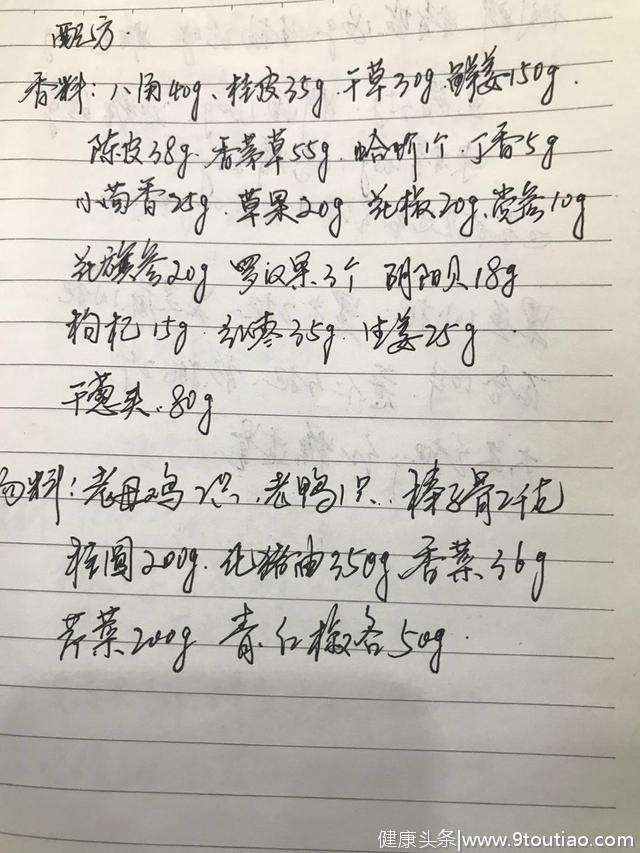 配方.
香料: 八角40g、桂皮35g.干草30g.鲜姜150g.
陈皮38g.香茅草55g.蛤蚧1个.丁香5g
小茴香25g.草果20g 花椒20g.党参10g
花旗参20g 罗汉果3个 阴阳贝18g
枸杞15g.红枣35g.生姜25g.
干葱头.80g
料: 老母鸡2只.老鸭1只.棒子骨2千克
桂圆200g.化猪油350g 香菜36g
芹菜200g 青.红椒各50g.
健康头条|www.9toutiao.com